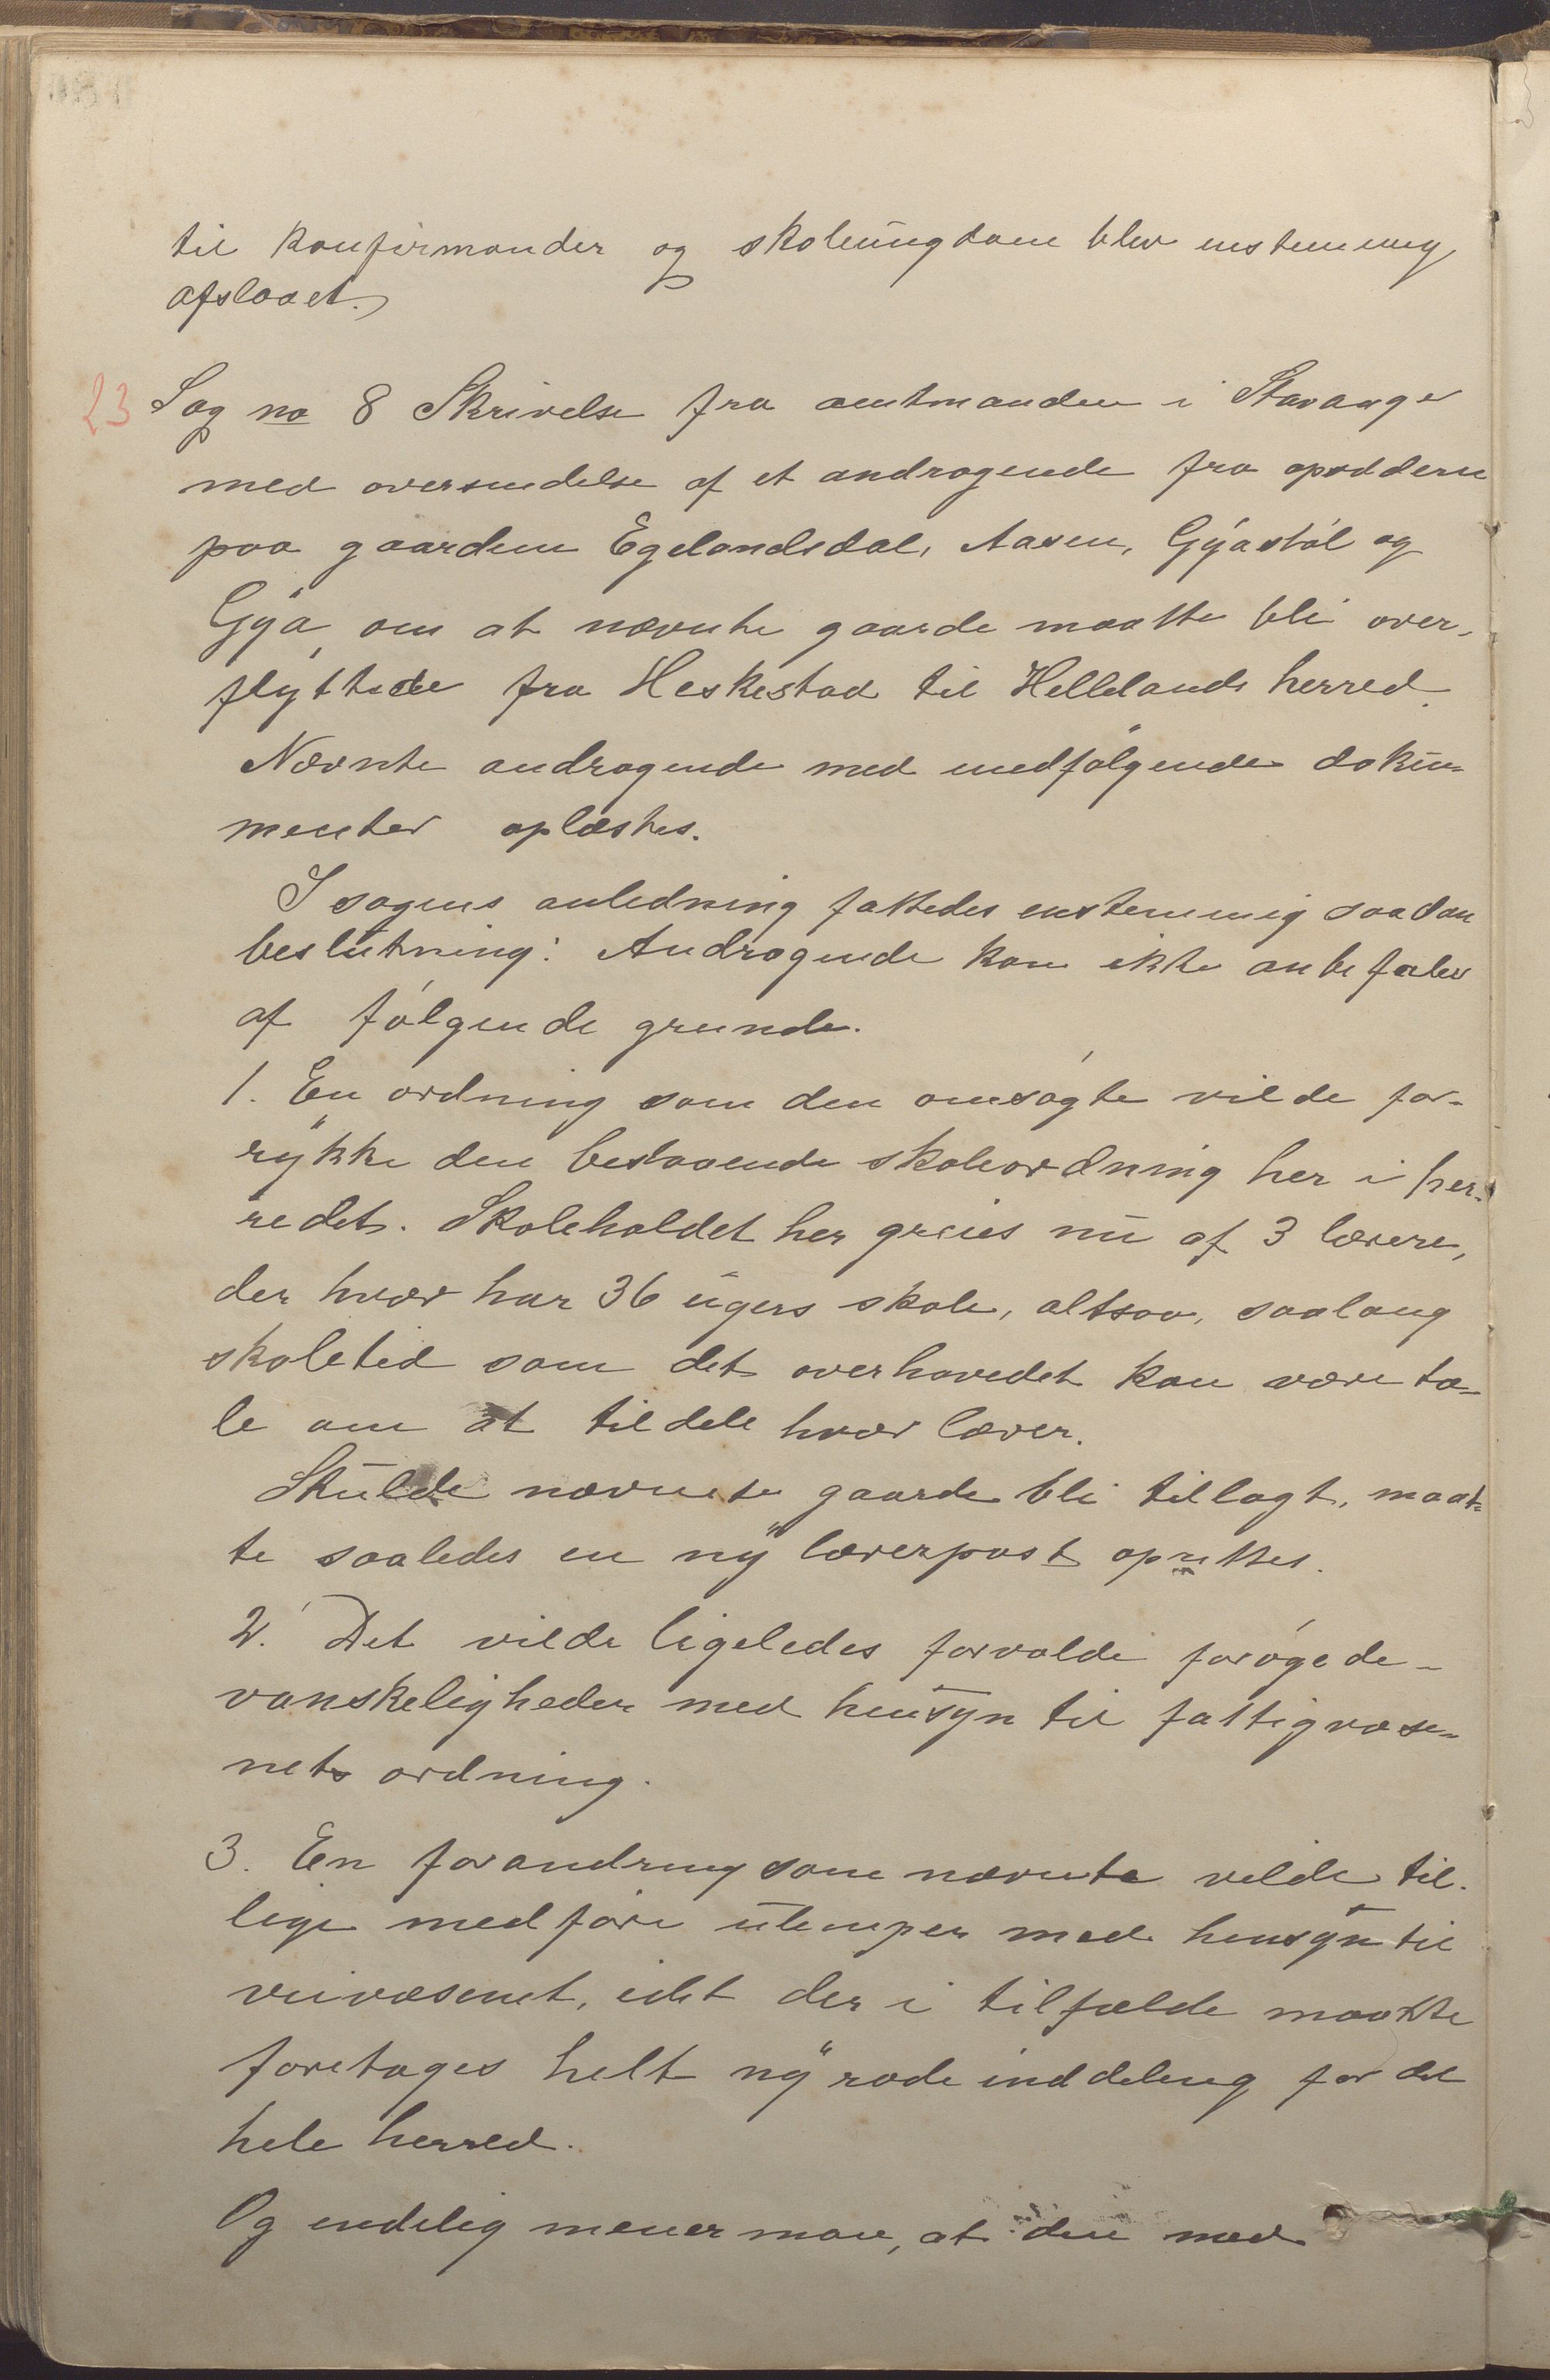 til konfirmander og skoleungdom blev enstemmig
afslaaet.
23 Sag no 8 Skrivelse fra amtmanden i Stavanger
med oversendelse af et andragende fra opsidderne
paa gaardene Egelandsdal, Aasen, Gýastøl og
Gýa, om at nævnte gaarde maatte bli over-
flyttede fra Heskestad til Hellelands herred.
Nævnte andragende med medfølgende doku-
menter oplæstes.
I sagens anledning fattedes enstemmig saadan
beslutning: Andragende kan ikke anbefales
af følgende grunde.
1. En ordning som den omsøgte vilde for-
rykke den bestaaende skoleordning her i her-
redet. Skoleholdet her greies nu af 3 lærere,
der hver har 36 ugers skole, altsaa, saalang
skoletid som det overhovedet kan være ta-
le om at tildele hver lærer.
Skulde nævnete gaarde bli tillagt, maat-
te saaledes en ny lærerpost oprettes.
2. Det vilde ligeledes forvolde forøgede-
vanskeligheder med hensyn til fattigvæse-
nets ordning.
3. En forandring som nævnte vilde til-
lige medføre ulemper med hensyn til
veivæsenet, idet der i tilfælde maatte
foretages helt ny rodeinddeling for det
hele herred.
Og endelig mener man, at den med